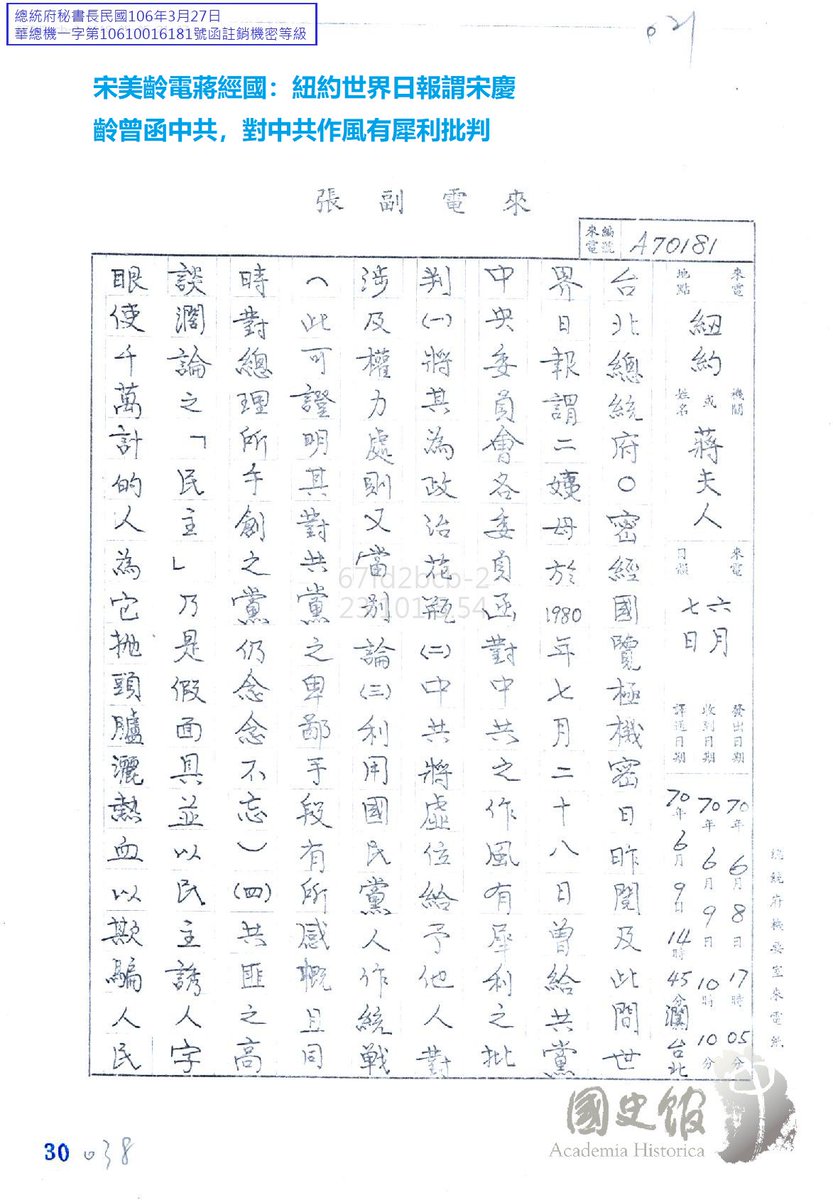 總統府秘書長民國106年3月27日
華總機一字第10610016181號函註銷機密等級
021
宋美齡電蔣經國：紐約世界日報謂宋慶
齡曾函中共，對中共作風有犀利批判
張副電來
來電編號
A70181
來電地點
紐約
機關或姓名
蔣夫人
來電日韻
六月七日
發出日期
70年6月8日17時05分
收到日期
70年6月9日10時10分
譯送日期
70年6月9日14時45分瀾台北
總統府機要室來電紙
台北總統府○密經國覽極機密日昨閱及此間世
界日報謂二姨母於1980年七月二十八日曾給共黨
中央委員會各委員函對中共之作風有犀利之批
判(一)將其為政治花瓶(二)中共將虛位給予他人對
涉及權力處則又當別論(三)利用國民黨人作統戰
(此可證明其對共黨之卑鄙手段有所感概且同
時對總理所手創之黨仍念念不忘)(四)共匪之高
談濶論之「民主」乃是假面具並以民主誘人字
眼使千萬計的人為它拋頭臚灑熱血以欺騙人民
國史館
Academia Historica
30
038